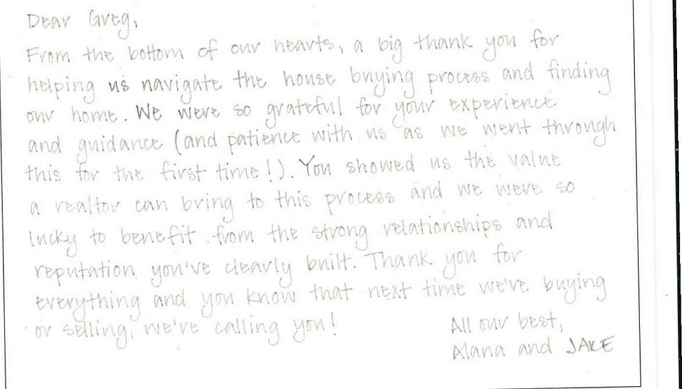 Dear Greg,
From the bottom of our hearts, a big thank you for
helping us navigate the house buying process and finding
our home. We were so grateful for your experience
and guidance (and patience with us as we went through
this for the first time!). You showed us the value
a realtor can bring to this process and we were so
lucky to benefit from the strong relationships and
reputation you've clearly built. Thank you for
everything and you know that next time we're buying
or selling, we're calling you!
All our best,
Alana and JAKE